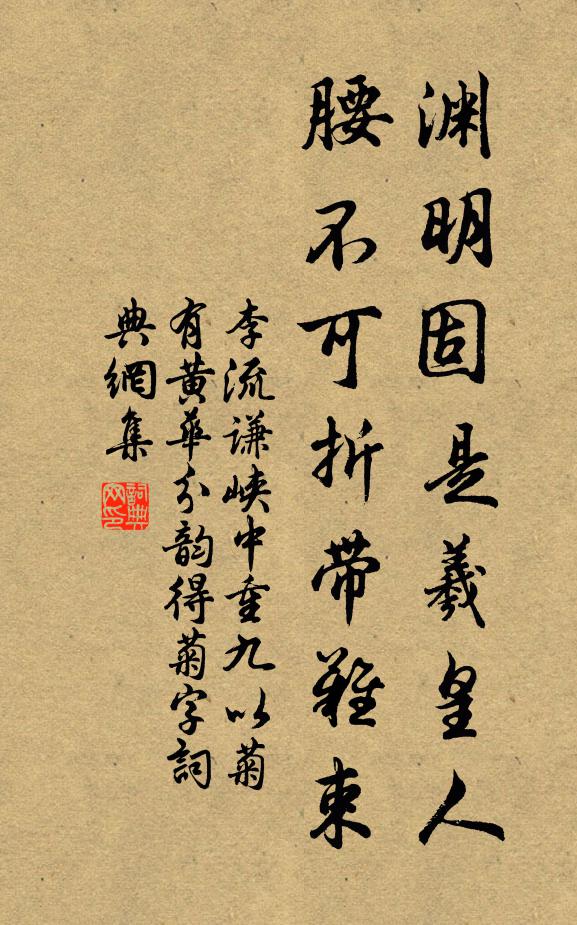 渊明固是羲皇人
腰不可折带難束
李流谦峡中重九以菊
有黄華分韵得菊字詞
典網集
詞典网印